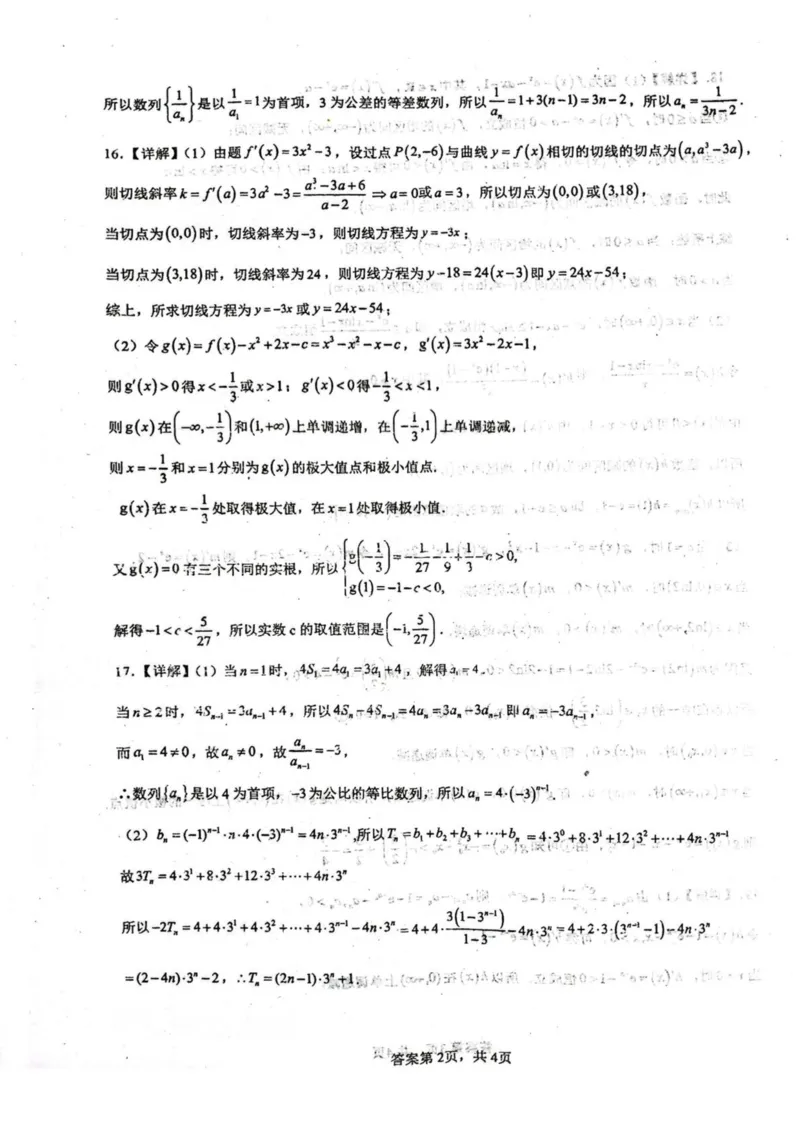 所以数列{1/aₙ}是以1/a₁=1为首项，3为公差的等差数列，所以1/aₙ=1+3(n-1)=3n-2，所以aₙ=1/(3n-2)．
16．【详解】（1）由题f′(x)=3x²-3，设过点P(2,-6)与曲线y=f(x)相切的切线的切点为(a,a³-3a)，
则切线斜率k=f′(a)=3a²-3=(a³-3a+6)/(a-2)⇒a=0或a=3，所以切点为(0,0)或(3,18)，
当切点为(0,0)时，切线斜率为-3，则切线方程为y=-3x；
当切点为(3,18)时，切线斜率为24，则切线方程为y-18=24(x-3)即y=24x-54；
综上，所求切线方程为y=-3x或y=24x-54；
（2）令g(x)=f(x)-x²+2x-c=x³-x²-x-c，g′(x)=3x²-2x-1，
则g′(x)>0得x<-1/3或x>1；g′(x)<0得-1/3<x<1，
则g(x)在(-∞,-1/3)和(1,+∞)上单调递增，在(-1/3,1)上单调递减，
则x=-1/3和x=1分别为g(x)的极大值点和极小值点，
g(x)在x=-1/3处取得极大值，在x=1处取得极小值．
又g(x)=0有三个不同的实根，所以{g(-1/3)=-1/27-1/9+1/3-c>0,
g(1)=-1-c<0,
解得-1<c<5/27，所以实数c的取值范围是(-1,5/27)．
17．【详解】（1）当n=1时，4S₁=4a₁=3a₁+4，解得a₁=4．
当n≥2时，4Sₙ₋₁=3aₙ₋₁+4，所以4Sₙ-4Sₙ₋₁=4aₙ=3aₙ-3aₙ₋₁即aₙ=-3aₙ₋₁，
而a₁=4≠0，故aₙ≠0，故aₙ/aₙ₋₁=-3，
∴数列{aₙ}是以4为首项，-3为公比的等比数列，所以aₙ=4·(-3)ⁿ⁻¹．
（2）bₙ=(-1)ⁿ⁻¹·n·4·(-3)ⁿ⁻¹=4n·3ⁿ⁻¹,所以Tₙ=b₁+b₂+b₃+⋯+bₙ=4·3⁰+8·3¹+12·3²+⋯+4n·3ⁿ⁻¹
故3Tₙ=4·3¹+8·3²+12·3³+⋯+4n·3ⁿ
所以-2Tₙ=4+4·3¹+4·3²+⋯+4·3ⁿ⁻¹-4n·3ⁿ=4+4·3(1-3ⁿ⁻¹)/(1-3)-4n·3ⁿ=4+2·3·(3ⁿ⁻¹-1)-4n·3ⁿ
=(2-4n)·3ⁿ-2，∴Tₙ=(2n-1)·3ⁿ+1．
答案第2页，共4页